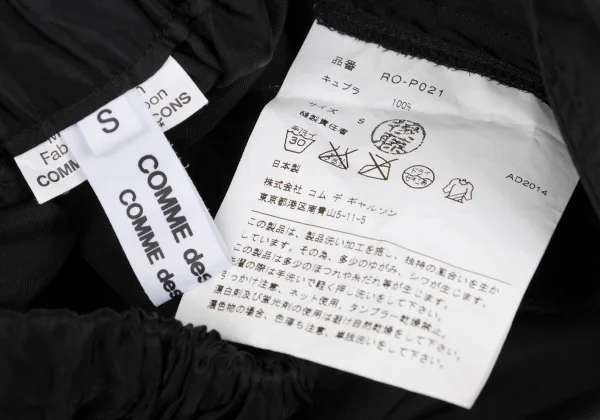 S
COMME des
COMME des
Fab
COMM
oon
ÇONS
品番 RO-P021
キュプラ 100%
サイズ S
縫製責任者
手洗イ
30
ドライ
セキユ系
日本製
AD2014
株式会社 コム デ ギャルソン
東京都港区南青山5-11-5
この製品は、製品洗い加工を施し、独特の風合いを生か
しています。その為、多少のゆがみ、シワが生じます。
この製品は多少のほつれや糸だれ等が生じます。
濯の際は手洗いで軽く押し洗いをして下さい。
っかけ注意、ネット使用、タンブラー乾燥禁止。
漂白剤及び蛍光剤の使用は避け自然乾燥をして下さい。
濃色物の場合、色落ち注意、単独洗いをして下さい。